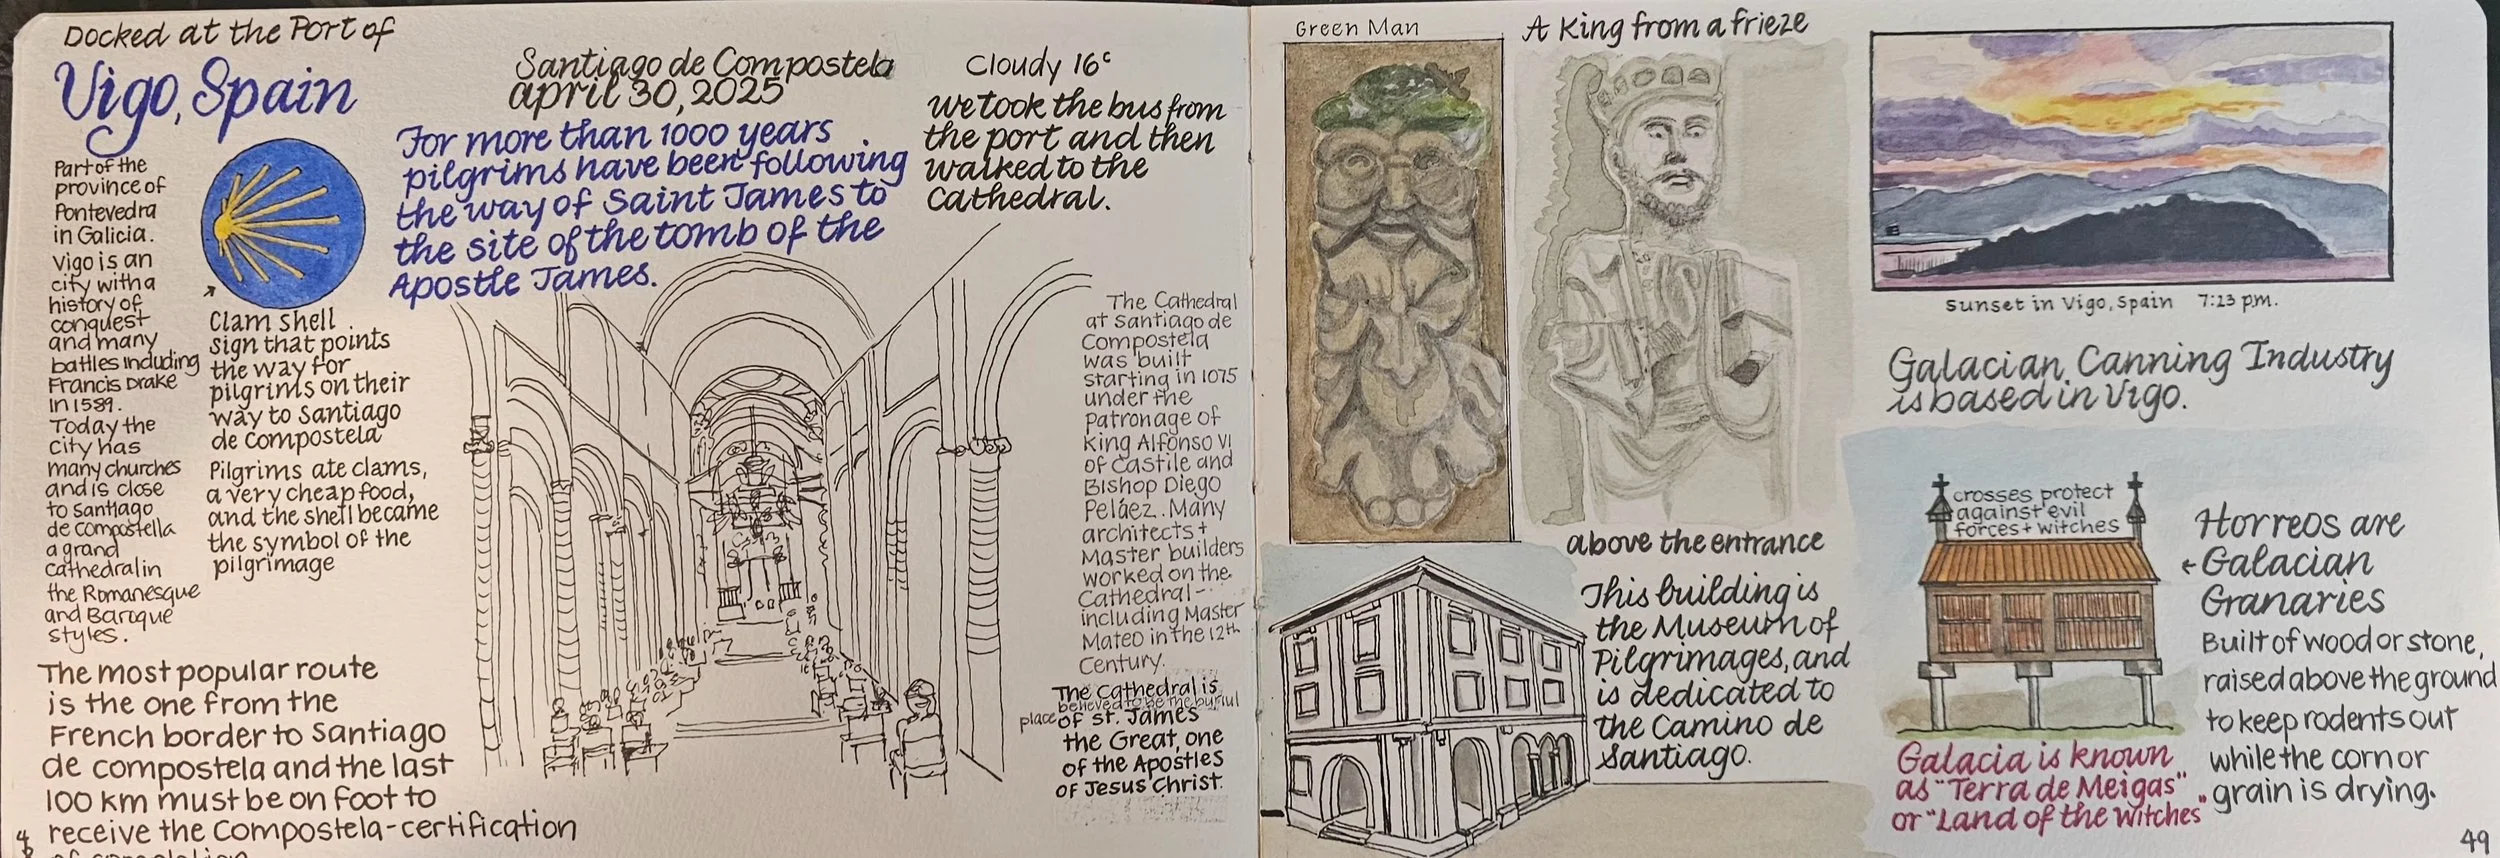 Docked at the Port of
Vigo, Spain
Part of the
province of
Pontevedra
in Galicia.
Vigo is an
city with a
history of
conquest
and many
battles including
Francis Drake
in 1589.
Today the
city has
many churches
and is close
to Santiago
de Compostella
a grand
cathedral in
the Romanesque
and Baroque
styles.
Clam shell
sign that points
the way for
pilgrims on their
way to Santiago
de Compostela
Pilgrims ate clams,
a very cheap food,
and the shell became
the symbol of the
pilgrimage
The most popular route
is the one from the
French border to Santiago
de compostela and the last
100 km must be on foot to
receive the Compostela-certification
of completion
Santiago de Compostela
april 30, 2025
For more than 1000 years
pilgrims have been following
the way of Saint James to
the site of the tomb of the
Apostle James.
Cloudy 16c
We took the bus from
the port and then
walked to the
Cathedral.
The Cathedral
at Santiago de
Compostela
was built
starting in 1075
under the
patronage of
king Alfonso VI
of Castile and
Bishop Diego
Peláez. Many
architects +
Master builders
worked on the
Cathedral -
including Master
Mateo in the 12th
Century.
The Cathedral is
believed to be the burial
place of St. James
the Great, one
of the Apostles
of Jesus Christ.
Green Man
A King from a frieze
above the entrance
This building is
the Museum of
Pilgrimages, and
is dedicated to
the Camino de
Santiago.
Sunset in Vigo, Spain 7:23 p.m.
Galacian Canning Industry
is based in Vigo.
crosses protect
against evil
forces + witches
Horreos are
Galacian
Granaries
Built of wood or stone,
raised above the ground
to keep rodents out
while the corn or
grain is drying.
Galacia is known
as "Terra de Meigas"
or "Land of the Witches"
49